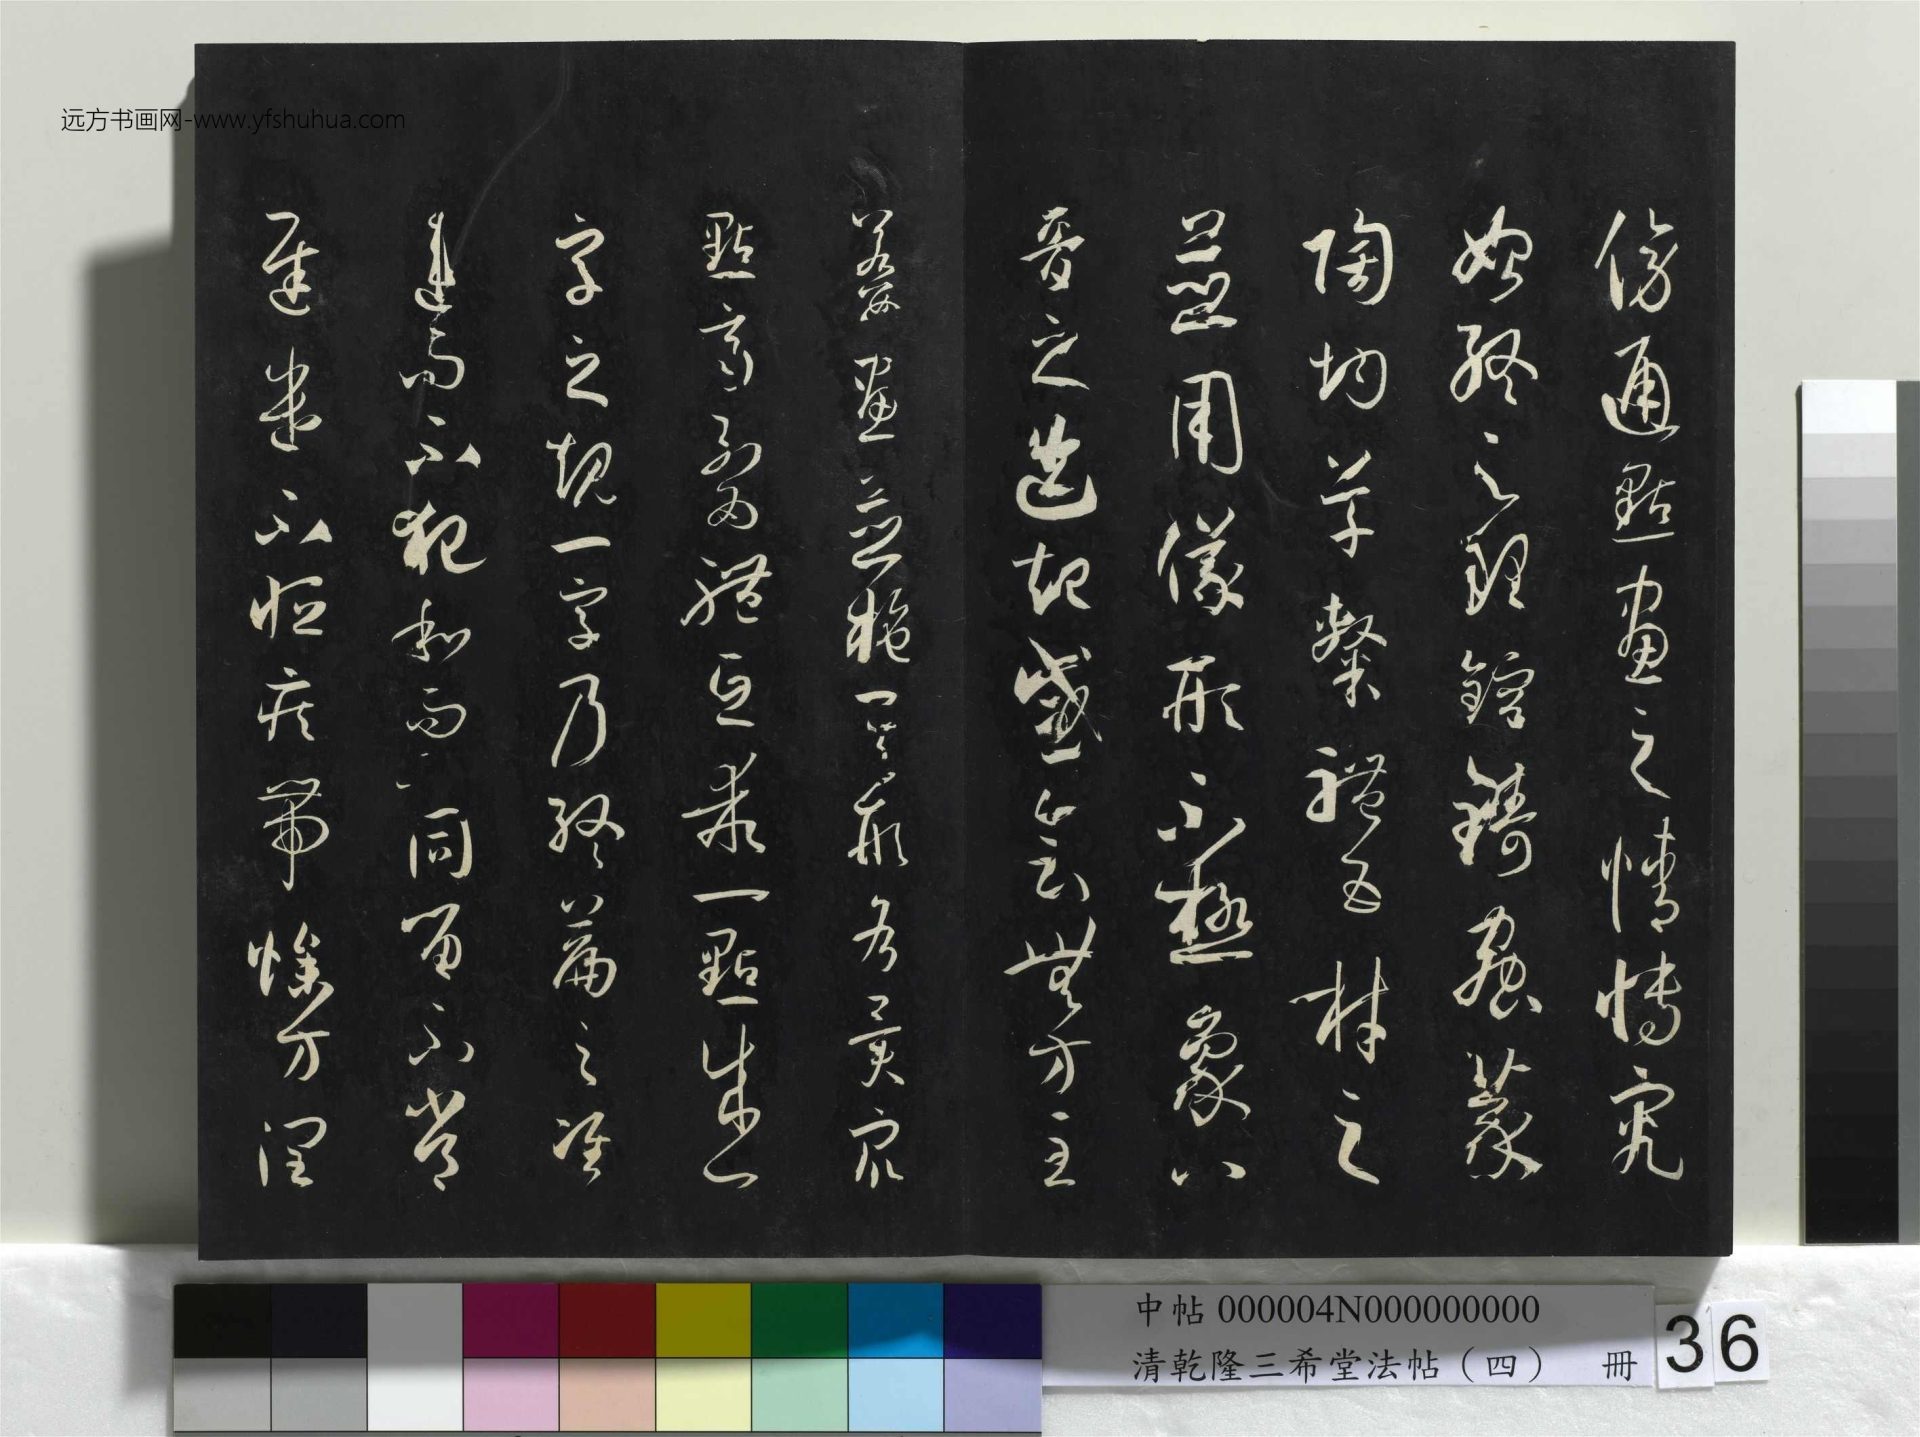 远方书画网-www.yfshuhua.com
傍通點畫之情博究
始終之理鎔鑄蟲篆
陶均草隸體五材之
並用儀形不極象八
音之迭起感會無方至
若數畫並施其形各異眾
點齊列為體互乖一點成一
字之規一字乃終篇之准
違而不犯和而不同留不常
遲遣不恒疾帶燥方潤
中帖 000004N000000000
清乾隆三希堂法帖（四） 冊
36